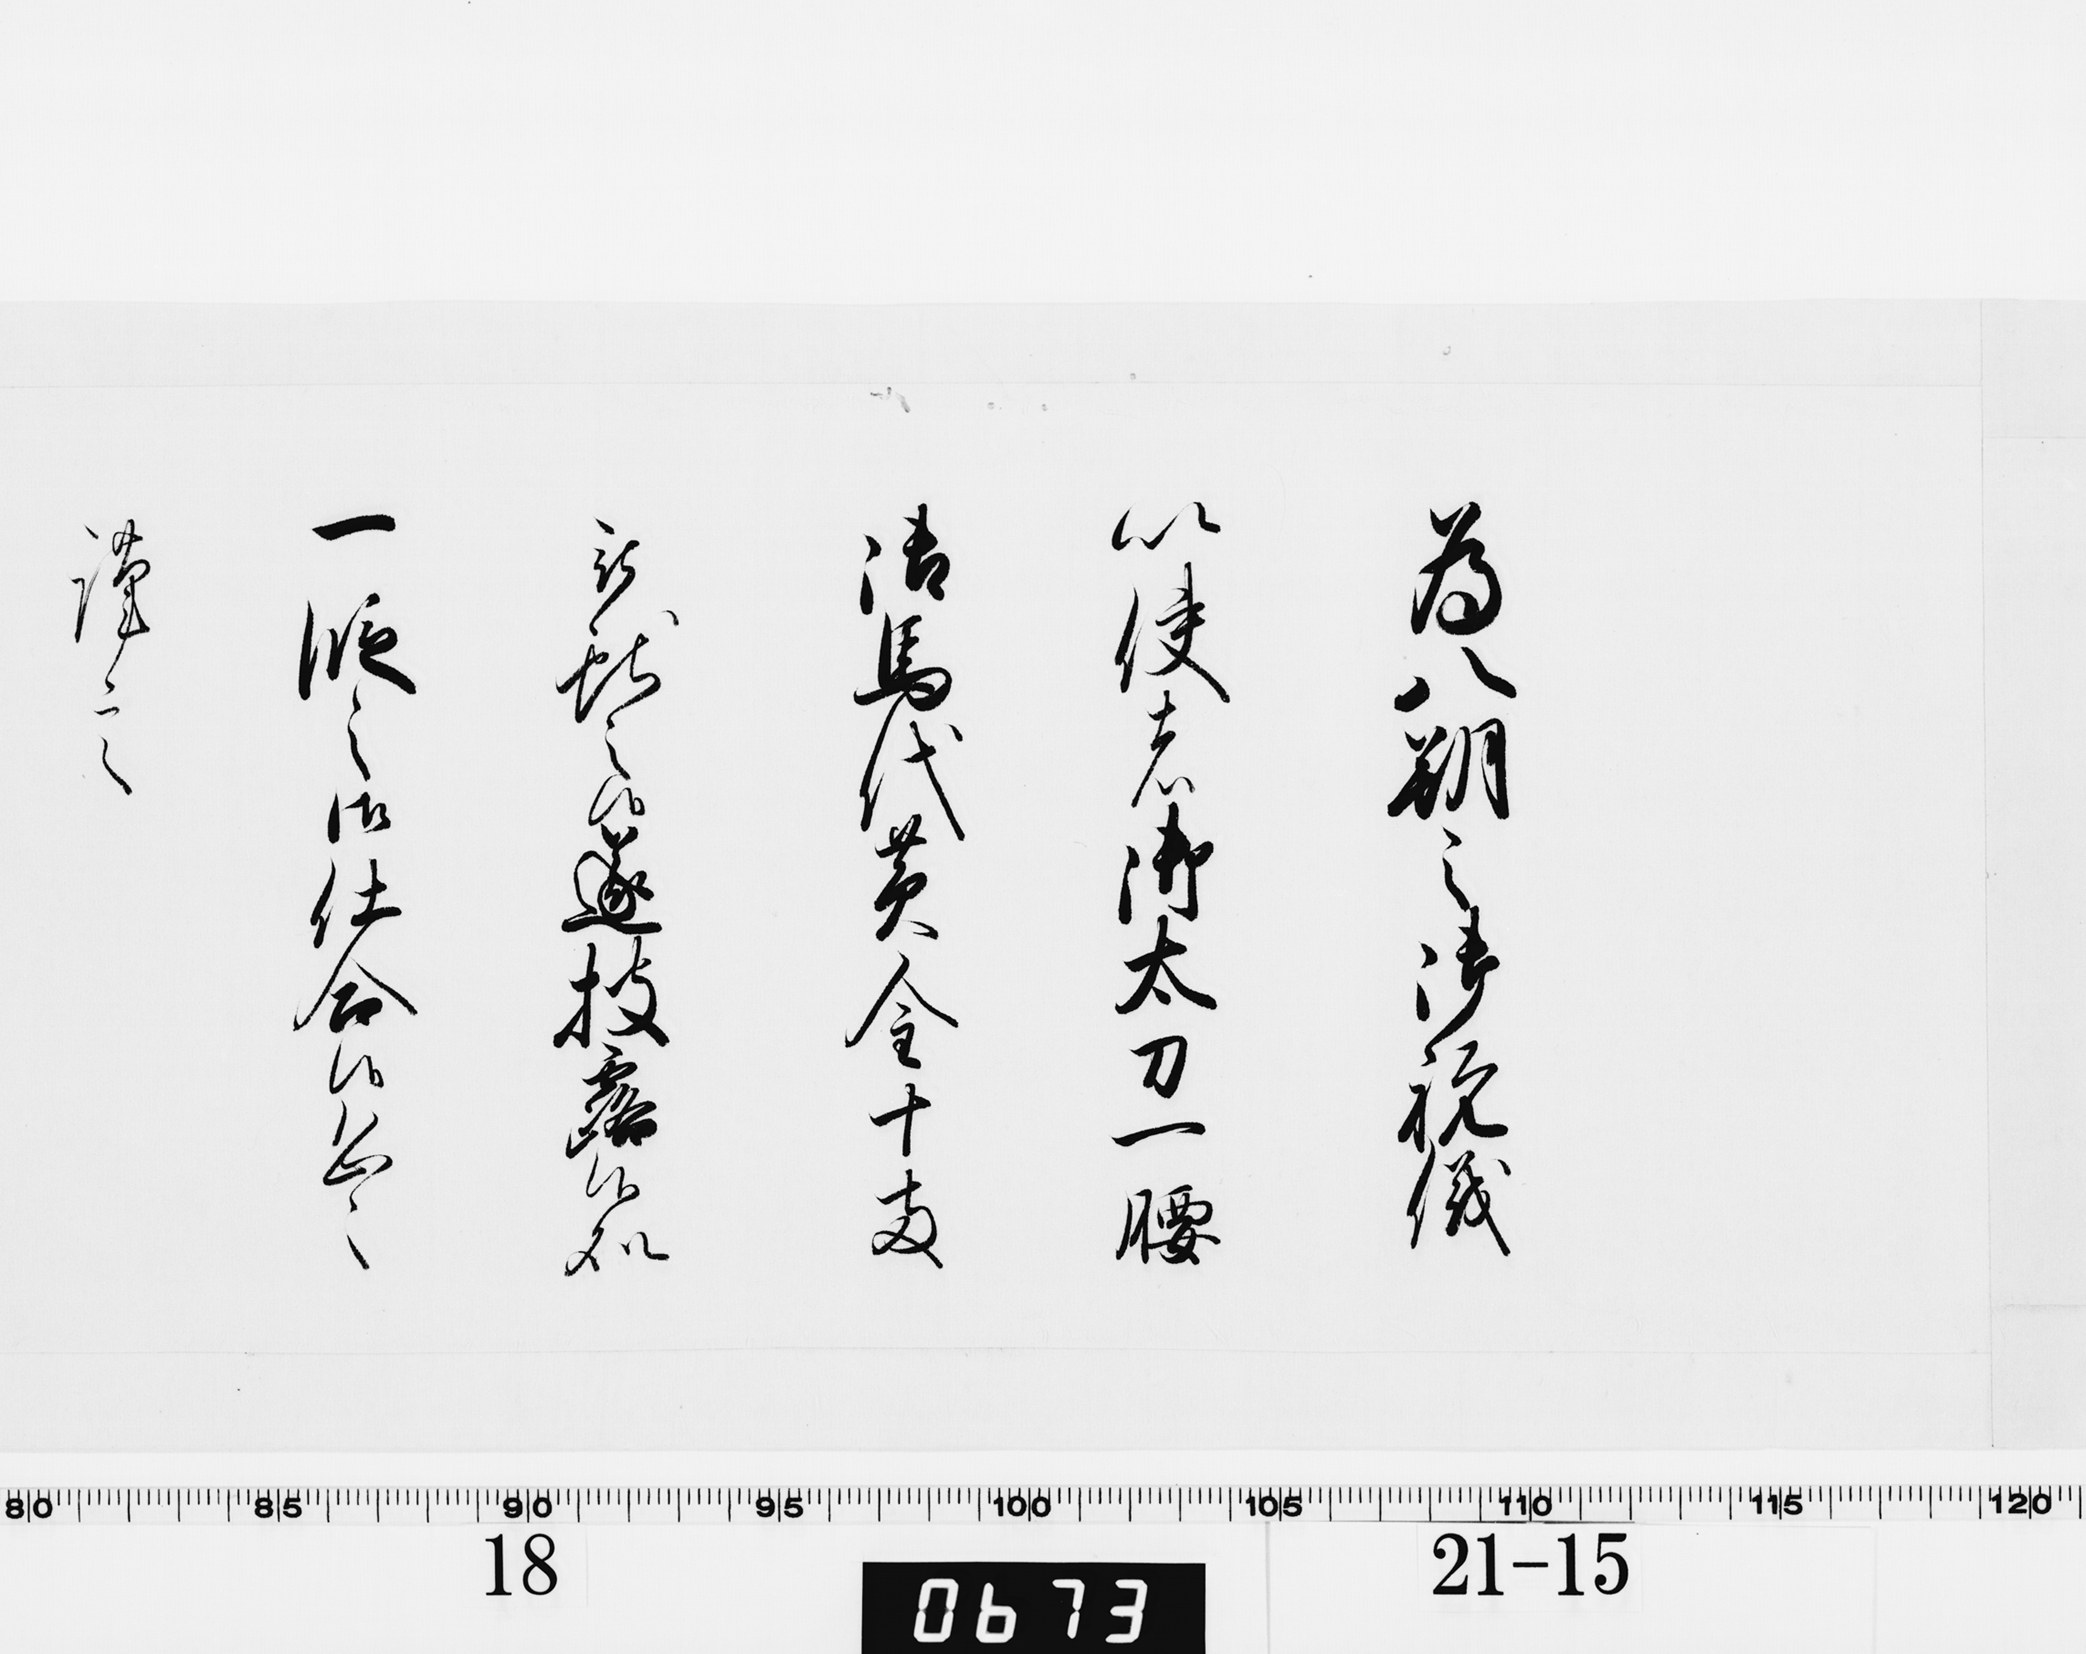 為八朔之御祝儀
以使者御太刀一腰
御馬代黄金十両
被献之候遂披露候処
一段之御仕合候恐々
謹言
80 85 90 95 100 105 110 115 120
18
0673
21-15